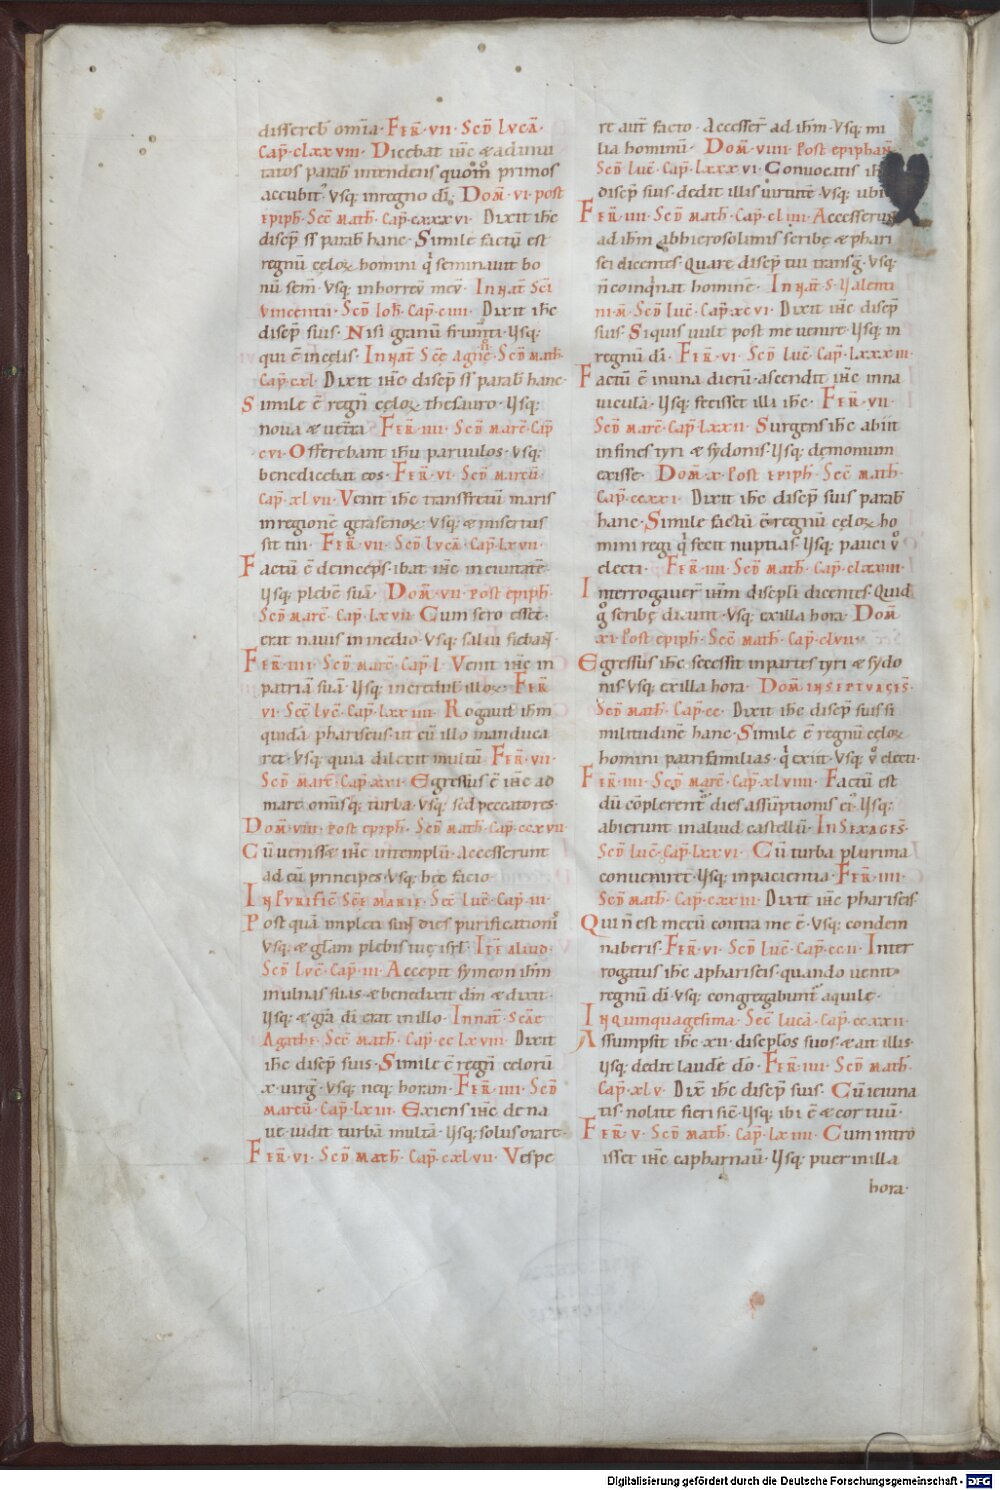 dissereb̄ om̄ia· Fer̄· vii· Scd̄ Lvcā·
Cap̄· clxxviii· Dicebat ih̄c & ad inui
tatos parab̄ intendens quom̊o primos
accubit᷒· Vsq; in regno dī· Dom̄· vi· post
epiph̄· Sec̄ Math̄· Cap̄· cxxxvi· Dixit ih̄c
discip̄ ss̄ parab̄ hanc· Simile factū est
regnū cęloꝝ homini q̇ seminauit bo
nū sem̄· Vsq; in horreū meū· In nat̄ Scī
Vincentii· Scd̄ Ioh̄· Cap̄· ciiii· Dixit ih̄c
discip̄ suis· Nisi granū frum̄ti· Vsq;
qui ē in cęlis· In nat̄ Scę̄ Agn̄ę· Scd̄ math̄·
Cap̄· cxl· Dixit ih̄c discip̄ ss̄ parab̄ hanc·
Simile ē regn̄ cęloꝝ thesauro· Vsq;
noua & uetera Fer̄· iiii· Scd̄ marc̄· Cap̄
cvi· Offerebant ih̄u paruulos· Vsq;
benedicebat eos· Fer̄· vi· Scd̄ marcū·
Cap̄· xlvii· Venit ih̄c transfretū maris
in regionē gerasenoꝝ· Vsq; & misertus
sit tui· Fer̄· vii· Scd̄ Lvcā· Cap̄· lxvii·
Factū ē deinceps· ibat ih̄c in ciuitatē·
Vsq; plebē suā· Dom̄· vii· post epiph̄·
Scd̄ marc̄· Cap̄· lxvii· Cum sero esset·
erat nauis in medio· Vsq; salui fiebant·
Fer̄· iiii· Scd̄ marc̄· Cap̄· l· Venit ih̄c in
patriā suā· Vsq; incredul̄ illoꝝ· Fer̄
vi· Sec̄ Lvc̄· Cap̄· lxxiiii· Rogauit ih̄m
quidā phariseus· ut cū illo manduca
ret· Vsq; quia dilexit multū Fer̄· vii·
Scd̄ marc̄· Cap̄· xxi· Egressus ē ih̄c ad
mare omisq; turba· Vsq; sed peccatores·
Dom̄· viii· post epiph̄· Scd̄ math̄· Cap̄· ccxvii·
Cū uenisset ih̄c in templū· Accesserunt
ad eū principes· Vsq; hęc facio·
In Pvrific̄ Scę̄ Marię· Sec̄ Luc̄· Cap̄· iii·
Post quā impleti sunt dies purificationi᷒
Vsq; & glām plebis tuę isrl̄· Itē aliud·
Scd̄ Lvc̄· Cap̄· iii· Accepit symeon ih̄m
in ulnas suas· & benedixit dm̄ & dixit·
Vsq; & grā dī erat in illo· In nat̄· Scę̄
Agathę· Sec̄ Math̄· Cap̄· cclxviii· Dixit
ih̄c discip̄ suis· Simile ē regn̄ celorū
x· uirḡ· Vsq; neq; horam· Fer̄· iiii· Scd̄
marcū· Cap̄· lxiii· Exiens ih̄c de na
ue· uidit turbā multā· Vsq; solus orare·
Fer̄· vi· Scd̄ Math̄· Cap̄· cxlvii· Vespe
re aut̄ facto· Accesser̄ ad ih̄m· Vsq; mi
lia hominū· Dom̄· viiii· post epiphan̄
Scd̄ Luc̄· Cap̄· lxxxvi· Conuocatis ih̄c
discip̄ suis· dedit illis uirtutē· Vsq; ubiq;
Fer̄· iiii· Scd̄ Math̄· Cap̄· cliiii· Accesserunt
ad ih̄m ab hierosolimis scribę & phari
sei dicentes· Quare discip̄ tui transḡ· Vsq;
n̄ coinq̇nat hominē· In nat̄· S· Valenti
ni· M̄· Scd̄ Luc̄· Cap̄· xcvi· Dixit ih̄c discip̄
suis· Si quis uult post me uenire· Vsq; in
regnū dī· Fer̄· vi· Scd̄ Luc̄· Cap̄· lxxxiii·
Factū ē in una dierū· ascendit ih̄c in na
uiculā· Vsq; fecisset illi ih̄c· Fer̄· vii·
Scd̄ marc̄· Cap̄· lxxii· Surgens ih̄c abiit
in fines tyri & sydonis· Vsq; demonium
exisse· Dom̄· x· post epiph̄· Sec̄ math̄·
Cap̄· ccxxi· Dixit ih̄c discip̄ suis parab̄
hanc· Simile factū ē regnū cęloꝝ ho
mini regi q̇ fecit nuptias· Vsq; pauci v̊
electi· Fer̄· iiii· Scd̄ math̄· Cap̄· clxxiii·
Interrogauer̄ ih̄m discipl̄i dicentes· Quid
g̊ scribę dicunt· Vsq; ex illa hora· Dom̄
xi· post epiph̄· Sec̄ math̄· Cap̄· clvii·
Egressus ih̄c· secessit in partes tyri & sydo
nis· Vsq; ex illa hora· Dom̄ in septvages̄·
Scd̄ math̄· Cap̄· cc· Dixit ih̄c discip̄ suis si
militudinē hanc· Simile ē regnū cęloꝝ
homini patri familias· q̇ exiit· Vsq; v̊ electi·
Fer̄· iiii· Scd̄ marc̄· Cap̄· xlviiii· Factū est
dū cōplerent᷒ dies assūptionis ei᷒· Vsq;
abierunt in aliud castellū· In Sexages̄·
Scd̄ Luc̄· Cap̄· lxxvi· Cū turba plurima
conueniret· Vsq; in paciencia· Fer̄· iiii·
Scd̄ math̄· Cap̄· cxxiii· Dixit ih̄c phariseis·
Qui n̄ est mecū contra me ē· Vsq; condem
naberis· Fer̄· vi· Scd̄ Luc̄· Cap̄· ccii· Inter
rogatus ih̄c a phariseis· quando uenit
regnū dī· Vsq; congregabunt᷒ aquilę·
In quinquagesima· Sec̄ Lucā· Cap̄· ccxxii·
Assumpsit ih̄c· xii· discipl̄os suos· & ait illis·
Vsq; dedit laudē dō· Fer̄· iiii· Scd̄ math̄·
Cap̄· xlv· Dix̄ ih̄c discip̄ suis· Cū ieiuna
tis· nolite fieri sic̄· Vsq; ibi ē & cor tuū·
Fer̄· v· Scd̄ math̄· Cap̄· lxiiii· Cum intro
isset ih̄c capharnaū· Vsq; puer in illa
hora·
Digitalisierung gefördert durch die Deutsche Forschungsgemeinschaft - DFG